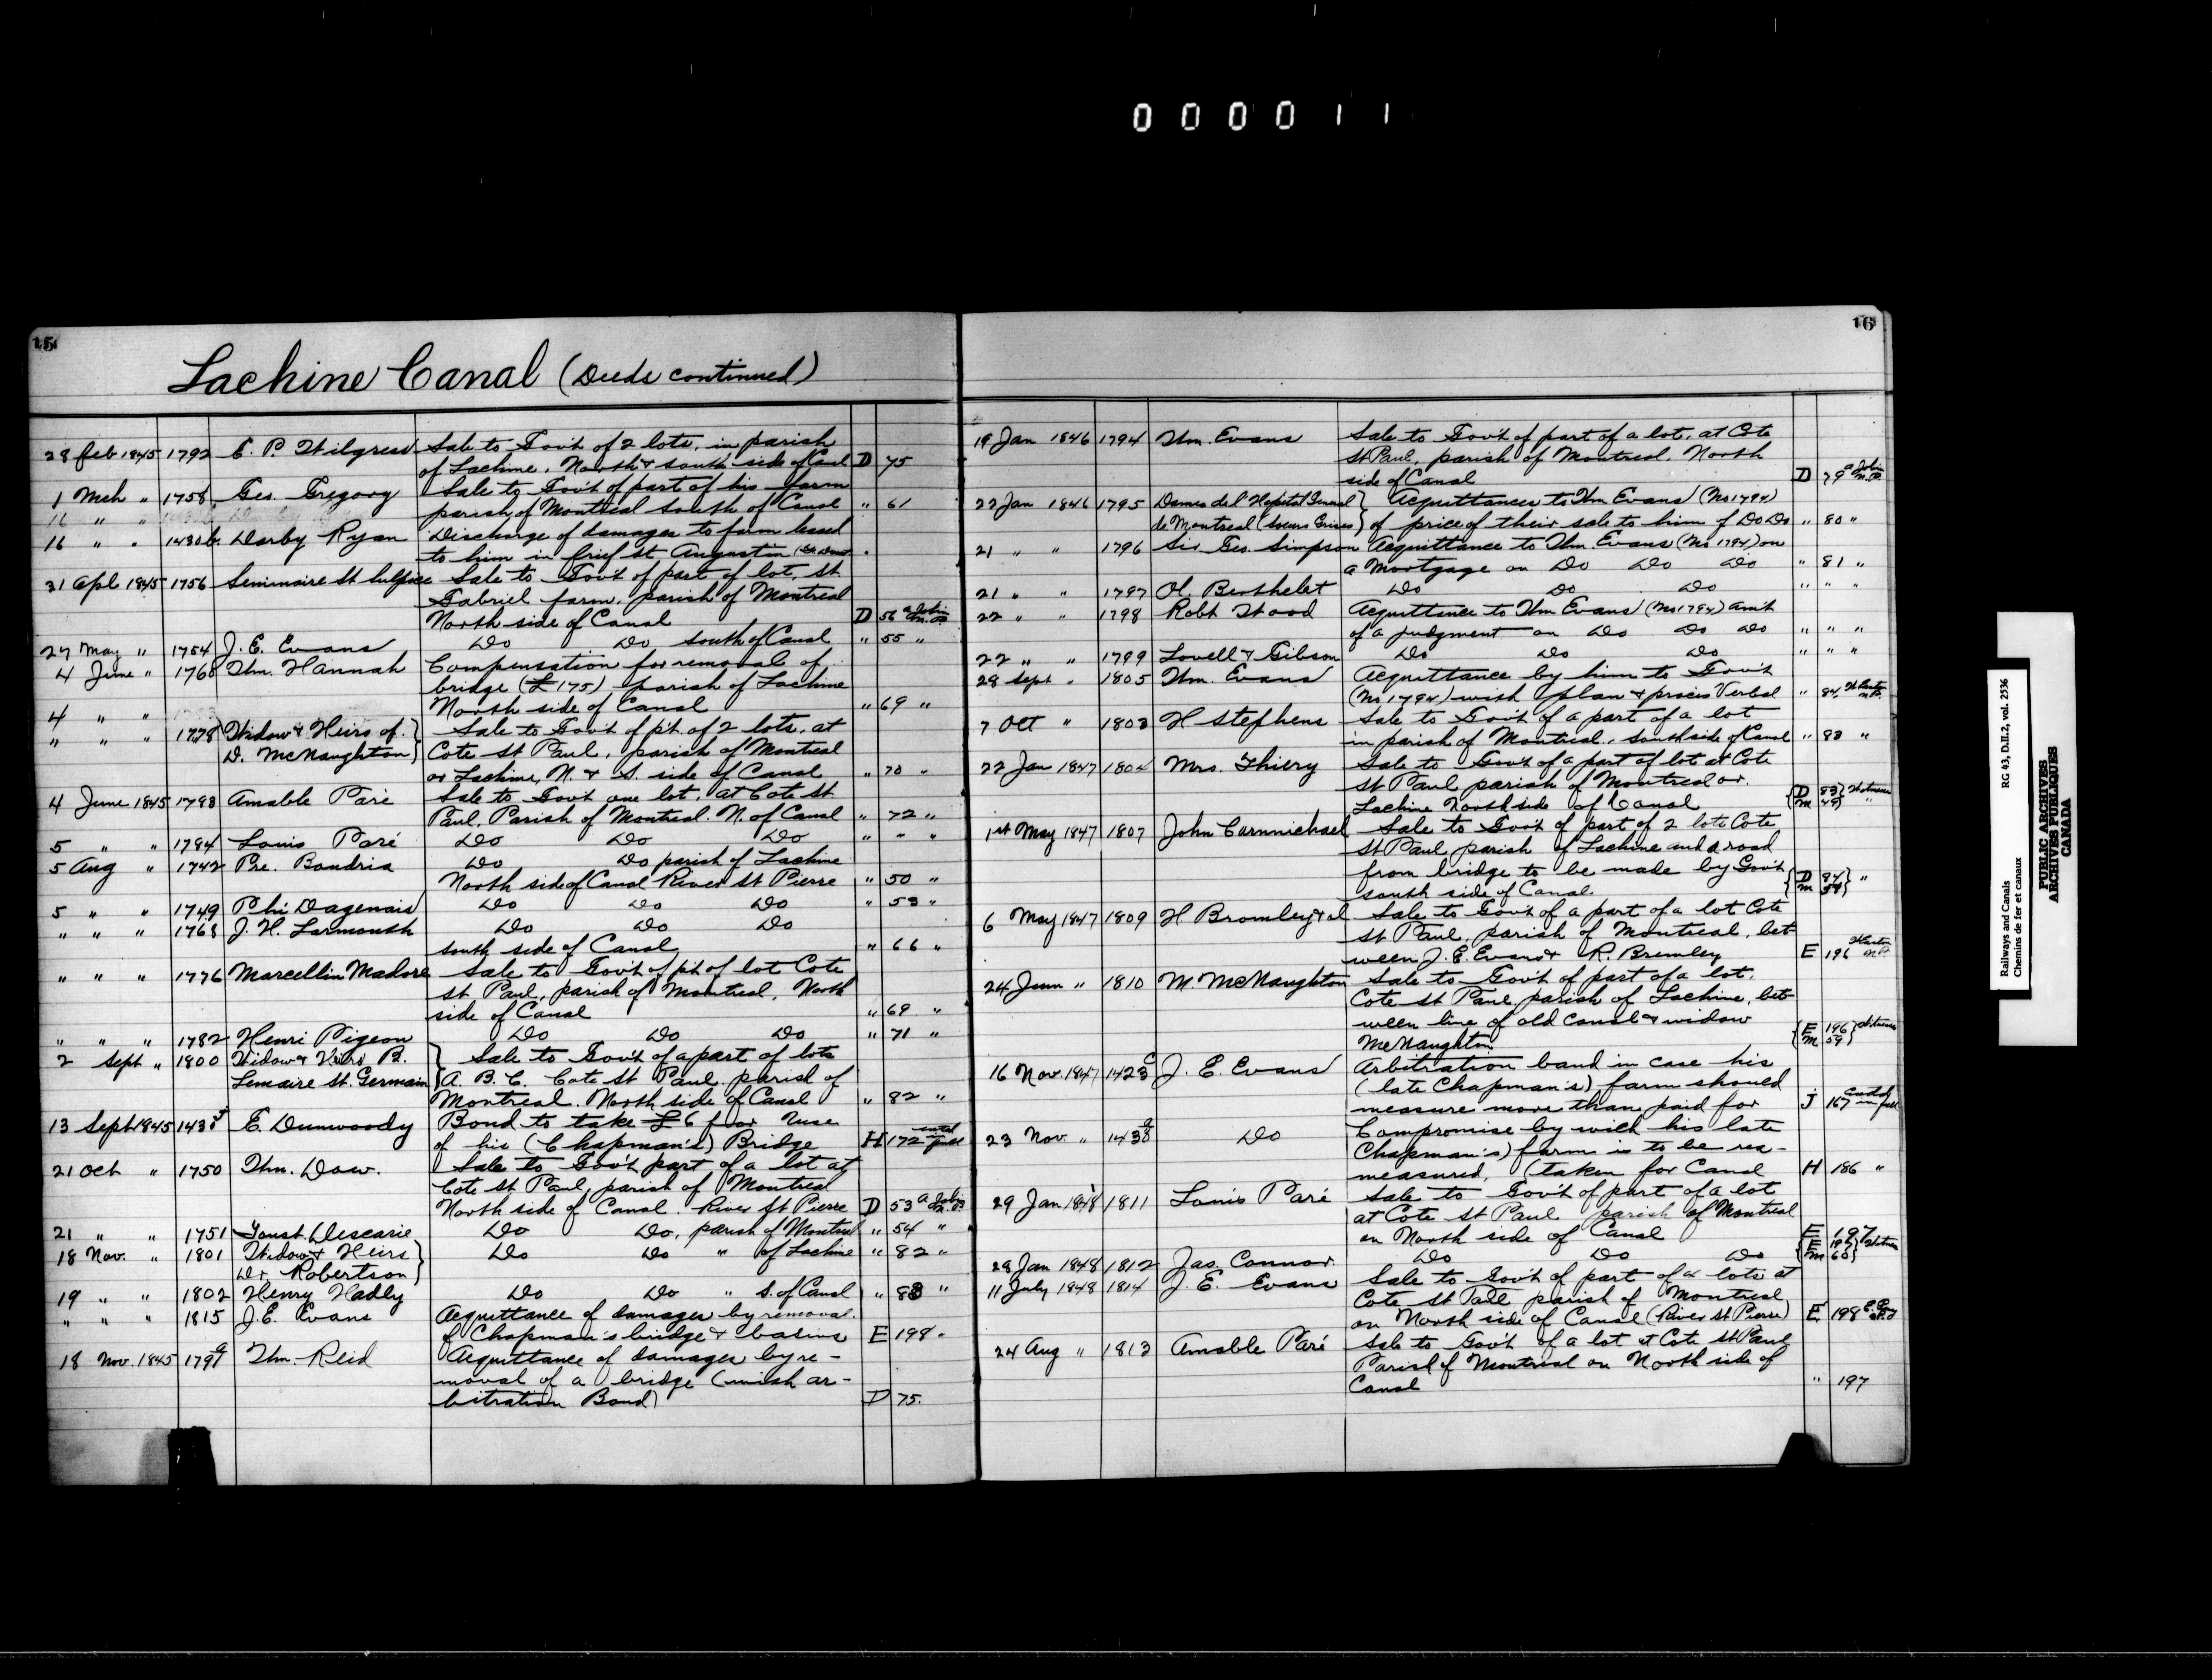 000011
15
Lachine Canal (Deeds continued)
28 Feb 1845 1792 E. P. Wilgress Sale to Gov't of 2 lots, in parish
of Lachine. North & south side of Canal D 75
1 Mch " 1758 Geo. Gregory Sale to Gov't of part of his farm
parish of Montreal south of Canal " 61
16 " "
16 " " 1430 b. Darby Ryan Discharge of damages to farm leased
to him in fief St Augustin
31 Apl 1845 1756 Seminaire St Sulpice Sale to Gov't of part of lot, St
Gabriel farm, parish of Montreal
North side of Canal D 56
27 May " 1754 J. E. Evans Do Do south of Canal " 55 "
4 June " 1760 Wm. Hannah Compensation for removal of
bridge (£175) parish of Lachine
North side of Canal " 69 "
4 " "
" " " 1778 Widow & Heirs of } Sale to Gov't of p't. of 2 lots, at
D. McNaughton } Cote St Paul, parish of Montreal
or Lachine, N. & S. side of Canal " 70 "
4 June 1845 1793 Amable Paré Sale to Gov't one lot, at Cote St
Paul. Parish of Montreal. N. of Canal " 72 "
5 " " 1784 Louis Paré Do Do Do " " "
5 Aug " 1742 Pre. Boudria Do Do parish of Lachine
North side of Canal River St Pierre " 50 "
5 " " 1749 Phi Dagenais Do Do Do " 53 "
" " " 1768 J. H. Larmouth Do Do Do
south side of Canal " 66 "
" " " 1776 Marcellin Madore Sale to Gov't of p't of lot Cote
St Paul, parish of Montreal, North
side of Canal " 69 "
" " " 1782 Henri Pigeon Do Do Do " 71 "
2 Sept " 1800 Widow & Heirs B. } Sale to Gov't of a part of lots
Lemaire St. Germain } A. B. C. Cote St Paul parish of
Montreal. North side of Canal " 82 "
13 Sept 1845 1438 E. Dunwoody Bond to take £6 for use
of his (Chapman's) Bridge H 172
21 Oct " 1750 Wm. Dow. Sale to Gov't part of a lot at
Cote St Paul, parish of Montreal
North side of Canal. River St Pierre D 53
21 " " 1751 Toust. Descarie Do Do, parish of Montreal " 54 "
18 Nov. " 1801 Widow & Heirs } Do Do " of Lachine " 82 "
Dr. Robertson }
19 " " 1802 Henry Hadly Do Do " S. of Canal " 83 "
" " " 1815 J. E. Evans Acquittance of damages by removal
of Chapman's bridge & basins E 198 "
18 Nov. 1845 1791 Wm. Reid Acquittance of damages by re-
moval of a bridge (with ar-
bitration Bond) D 75.
16
19 Jan 1846 1794 Wm. Evans Sale to Gov't of part of a lot, at Cote
St Paul, parish of Montreal North
side of Canal D 79
22 Jan 1846 1795 Dames del Hopital General } Acquittances to Wm Evans (No 1794)
de Montreal (Soeurs Grises } of price of their sale to him of Do Do " 80 "
21 " " 1796 Sir Geo. Simpson Acquittance to Wm. Evans (No 1794) on
a Mortgage on Do Do Do " 81 "
21 " " 1797 Ol. Berthelet Do Do Do " " "
22 " " 1798 Robt Wood Acquittance to Wm Evans (No 1794) am't
of a judgment on Do Do Do " " "
22 " " 1799 Lovell & Gibson Do Do Do " " "
28 Sept " 1805 Wm. Evans Acquittance by him to Gov't
(No 1794) with plan & proces Verbal " 84
7 Oct " 1803 H Stephens Sale to Gov't of a part of a lot
in parish of Montreal, South side of Canal " 83 "
22 Jan 1847 1804 Mrs. Thiery Sale to Gov't of a part of lot at Cote
St Paul parish of Montreal or
Lachine North side of Canal { D 83 }
{ M 49 } "
1st May 1847 1807 John Carmichael Sale to Gov't of part of 2 lots Cote
St Paul parish of Lachine and a road
from bridge to be made by Gov't
south side of Canal { D 84 } "
{ M
6 May 1847 1809 H Bromley & al Sale to Gov't of a part of a lot Cote
St Paul, parish of Montreal, bet
ween J. E. Evans & R. Bromley E 196
24 June " 1810 M. McNaughton Sale to Gov't of part of a lot,
Cote St Paul parish of Lachine, bet-
ween line of old canal & widow
McNaughton { E 196 }
{ M 59 }
16 Nov. 1847 1423 c J. E. Evans Arbitration bond in case his
(late Chapman's) farm should
measure more than paid for J 167
23 Nov. " 1438 Do Compromise by wich his late
Chapman's) farm is to be rea-
measured, (taken for Canal H 186 "
29 Jan 1848 1811 Louis Paré Sale to Gov't of part of a lot
at Cote St Paul parish of Montreal
on North side of Canal E 197
28 Jan 1848 1812 Jas. Connor Do Do Do { E 197 }
{ M 60 }
11 July 1848 1814 J. E. Evans Sale to Gov't of part of 2 lots at
Cote St Paul parish of Montreal
on North side of Canal (River St Pierre) E 198
24 Aug " 1813 Amable Paré Sale to Gov't of a lot at Cote St Paul
Parish of Montreal on North side of
Canal " 197
Railways and Canals RG 43, D.II.2, vol. 2536
Chemins de fer et canaux
PUBLIC ARCHIVES
ARCHIVES PUBLIQUES
CANADA